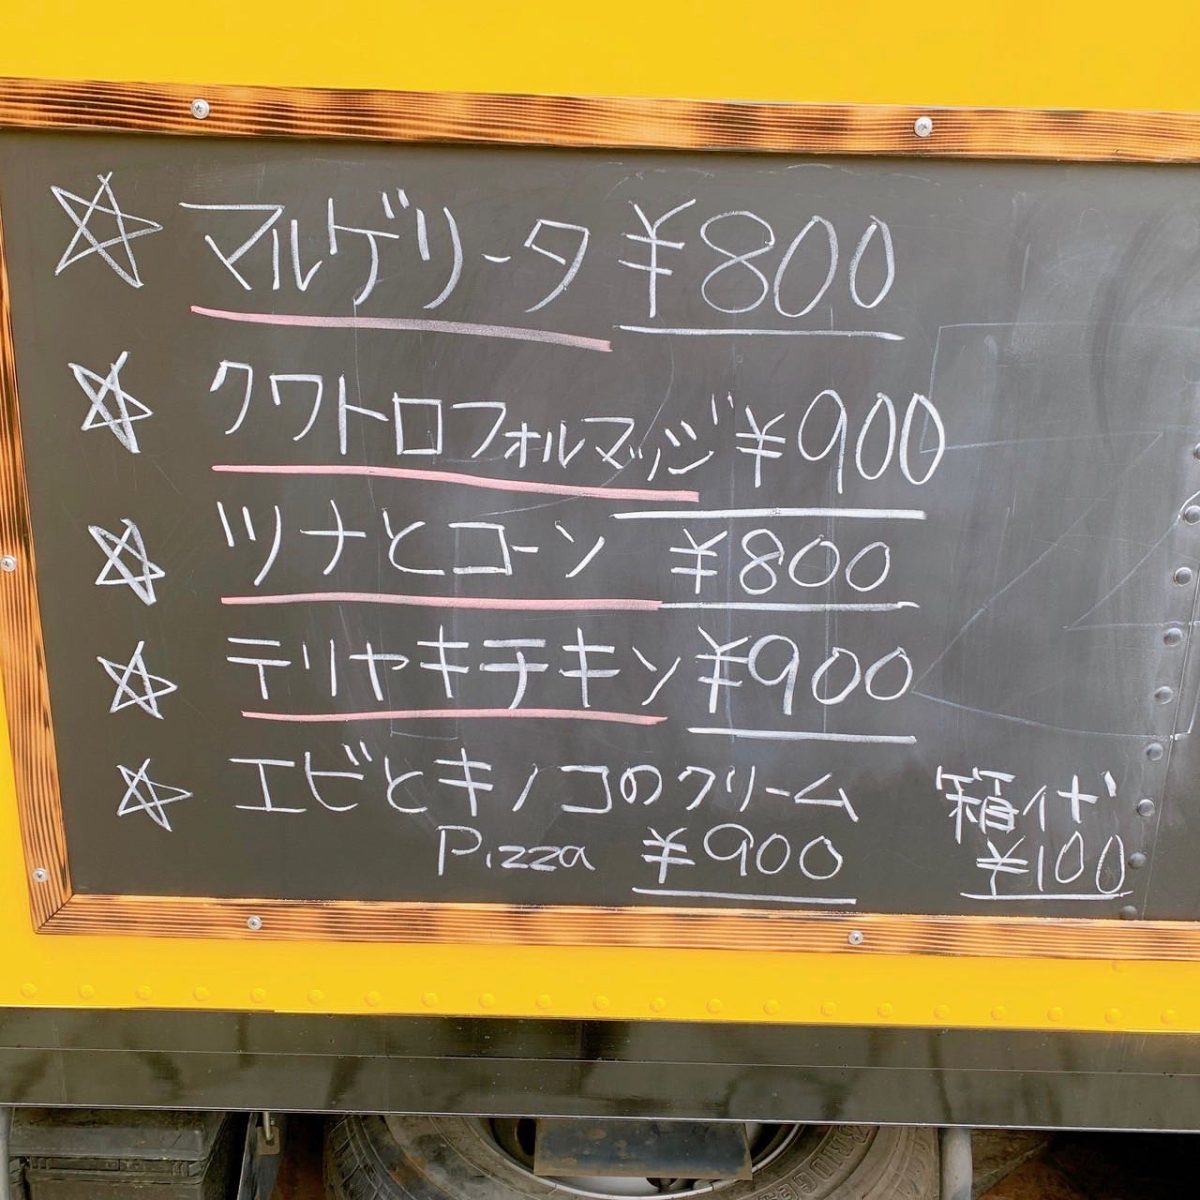 ☆ マルゲリータ ¥800
☆ クワトロフォルマッジ ¥900
☆ ツナとコーン ¥800
☆ テリヤキチキン ¥900
☆ エビとキノコのクリーム
Pizza ¥900
箱代
¥100